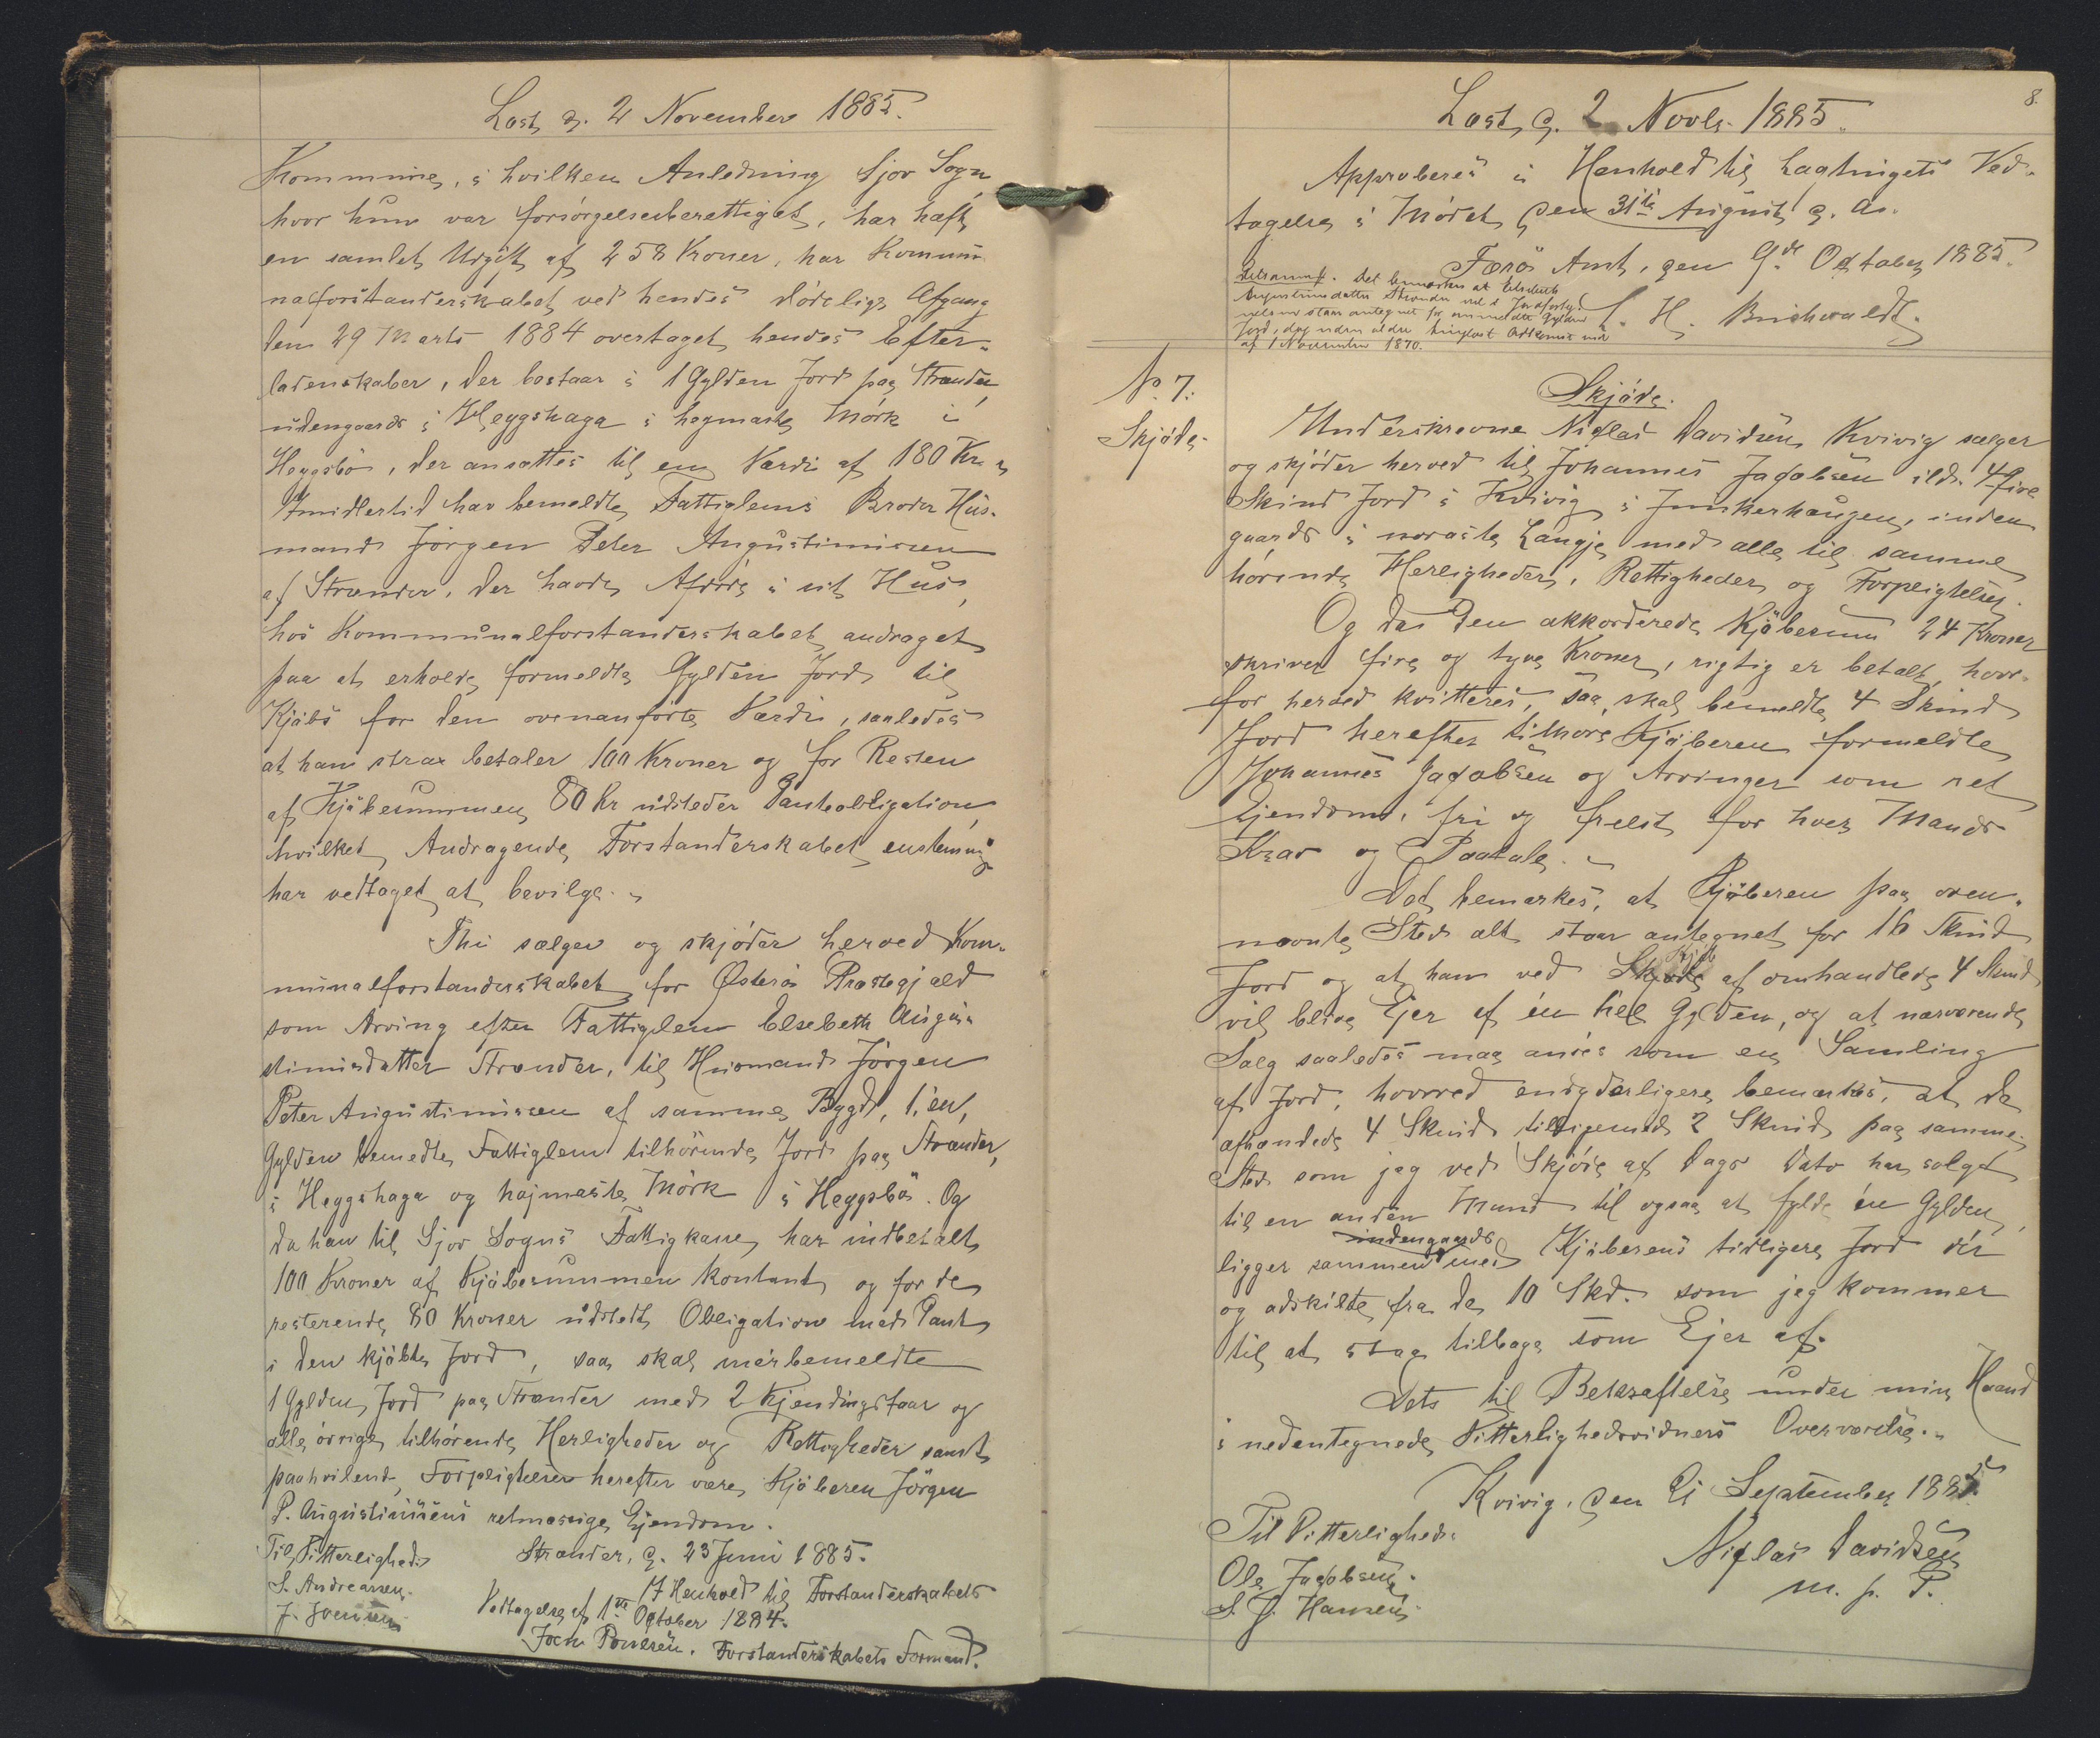 Læst d. 2 November 1885.
Kommune, i hvilken Anledning Sjov Sogn,
hvor hun var forsörgelsesberettiget, har haft
en samlet Udgift af 258 Kroner, har Kommu-
nalforstanderskabet ved hendes dödelige Afgang
den 29 Marts 1884 overtaget hendes Efter-
ladenskaber, der bestaar i 1 Gylden Jord paa Strænder,
udengaards i Heygshaga i högmaste Mörk i
Heygsbö, der ansættes til en Værdi af 180 Kr.
Imidlertid har bemeldte Fattiglems Broder Hus-
mand Jörgen Peter Augustinussen
af Strænder, der havde Afdöde i sit Hus,
hos Kommunalforstanderskabet andraget
paa at erholde formeldte Gylden Jord til
Kjöbs for den ovenanförte Værdi, saaledes
at han strax betaler 100 Kroner og for Resten
af Kjöbesummen 80 Kr udsteder Panteobligation,
hvilket Andragende Forstanderskabet enstemmig
har vedtaget at bevilge.
Thi sælger og skjöder herved Kom-
munalforstanderskabet for Österö Præstegjæld
som Arving efter Fattiglem Elsebeth Augu-
stinusdatter Strænder, til Husmand Jörgen
Peter Augustinussen af samme Bygd, 1, én,
Gylden bemeldte Fattiglem tilhörende Jord paa Strænder,
i Heygshaga og högmaste Mörk i Heygsbö. Og
da han til Sjov Sogns Fattigkasse har indbetalt
100 Kroner af Kjöbesummen kontant og for de
resterende 80 Kroner udstedt Obligation med Pant
i den kjöbte Jord, saa skal mérbemeldte
1 Gylden Jord paa Strænder med 2 Kjendingsfaar og
alle övrige tilhörende Herligheder og Rettigheder samt
paahvilende Forpligtelser herefter være Kjöberen Jörgen
P. Augustinussens retmæssige Ejendom.
Til Vitterlighed: Strænder, d. 23 Juni 1885.
S. Andreassen. I Henhold til Forstanderskabets
J. Joensen Vedtagelse af 1ste October 1884.
Joen Poulsen. Forstanderskabets Formand.
8.
Læst d. 2 Novbr. 1885.
Approberes i Henhold til Lagtingets Ved-
tagelse i Mödet den 31te August d. As.
Færö Amt, den 9de October 1885.
Det bemærkes at Elsebeth
Augustinusdatter Strænder ved i Jordfortegn
nelsen staar antegnet for ommeldte Gylden
Jord, dog uden ældre tinglæst Adkomst end
af 1 November 1870.
C. H. Buchwaldt.
No. 7. Skjöde.
Skjöde. Underskrevne Niclas Davidsen, Kvivig sælger
og skjöder herved til Johannes Jacobsen ibd. 4 fire
Skind Jord i Kvivig i Junkerhaugen, inden
gaards i noraste Langje med alle til samme
hörende Herligheder, Rettigheder og Forpligtelser.
Og da den akkorderede Kjöbesum 24 Kroner
skriver fire og tyve Kroner, rigtig er betalt, hvor-
for herved kvitteres, saa skal bemeldte 4 Skind
Jord herefter tilhöre Kjöberen formeldte
Johannes Jacobsen og Arvinger som ret
Ejendom, fri og frelst for hver Mands
Krav og Paatale.
Det bemærkes, at Kjöberen paa oven-
nævnte Sted alt staar antegnet for 16 Skind
Jord og at han ved Skjöde af omhandlede 4 Skind
vil blive Ejer af én hel Gylden, og at nærværende
Salg saaledes maa anses som en Samling
af Jord, hvorved endyderligere bemærkes, at de
afhændede 4 Skind tilligemed 2 Skind paa samme
Sted som jeg ved Skjöde af Dags Dato har solgt
til en anden Mand til ogsaa at fylde én Gylden,
indengaards
ligger sammen med Kjöberens tidligere Jord dér
og adskilte fra de 10 Skd. som jeg kommer
til at staa tilbage som Ejer af.
Dets til Bekræftelse under min Haand
i nedentegnede Vitterlighedsvidners Overværelse.
Kvivig, den 21 September 1885
Til Vitterlighed:
Niclas Davidsen
Ole Jacobsen.
m. p. P.
S. J. Hansen.